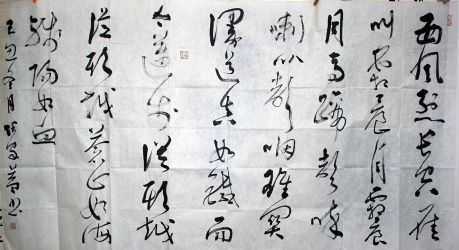 西风烈长空雁
叫霜晨月霜晨
月马蹄声碎
喇叭声咽雄关
漫道真如铁而
今迈步从头越
从头越苍山如海
残阳如血